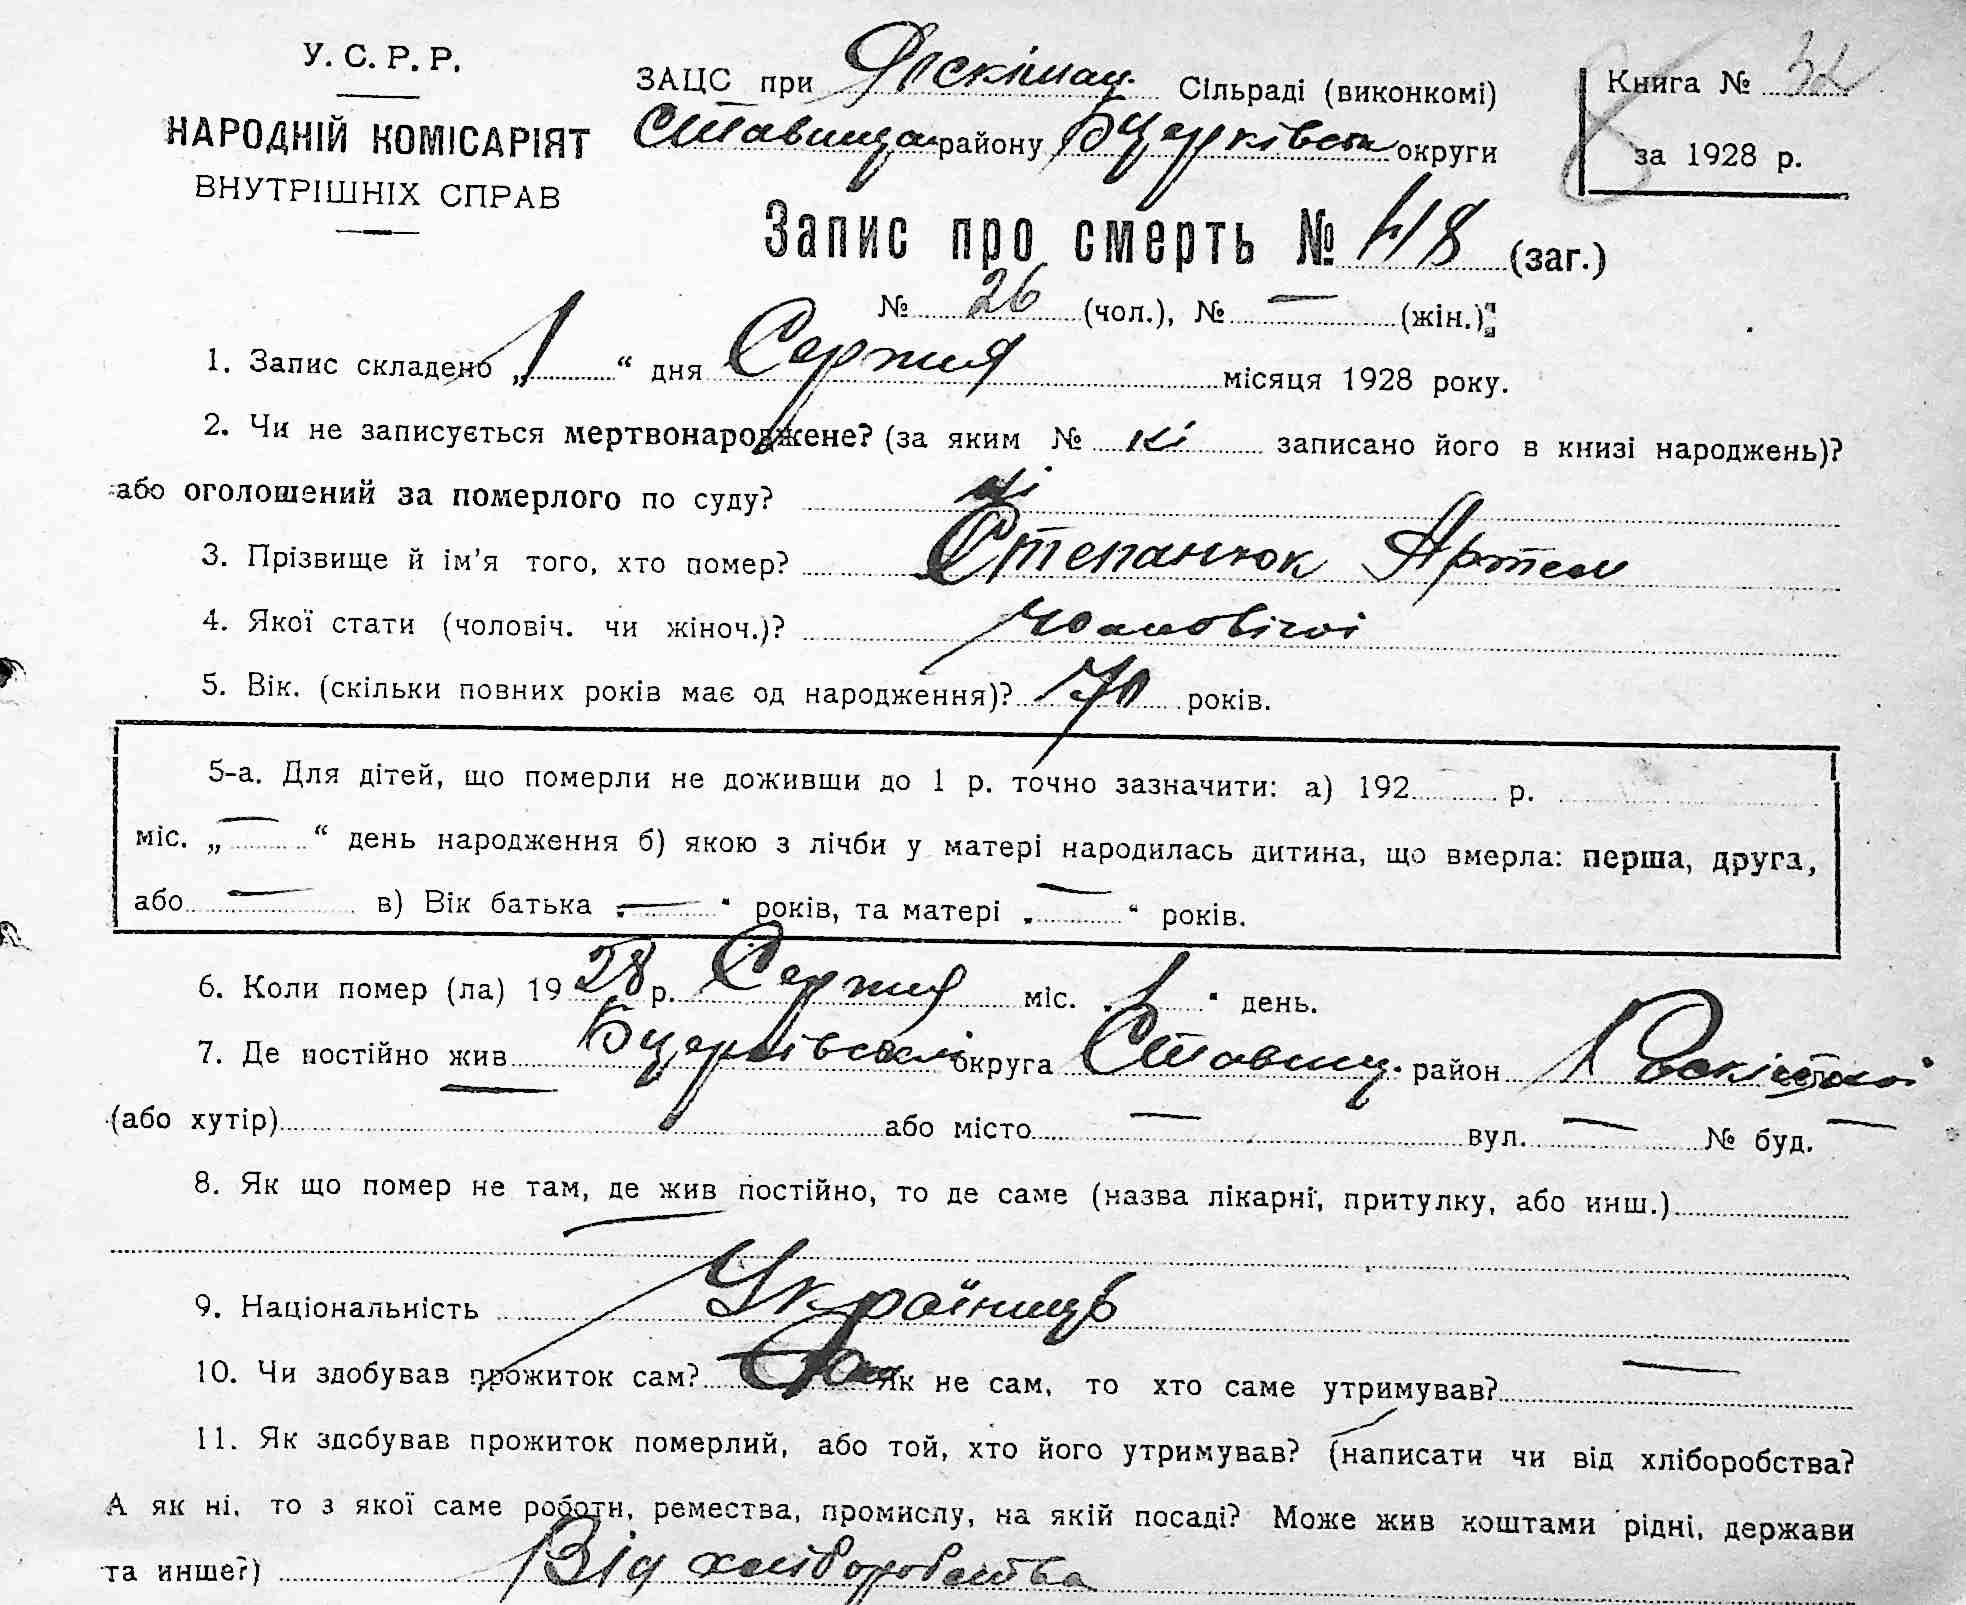 У. С. Р. Р.
НАРОДНІЙ КОМІСАРІЯТ
ВНУТРІШНІХ СПРАВ
ЗАЦС при Сільраді (виконкомі)
Ставищан району Бцерківськ округи
Книга № 32
за 1928 р.
Запис про смерть № 48 (заг.)
№ 26 (чол.), № — (жін.)
1. Запис складено „1“ дня Серпня місяця 1928 року.
2. Чи не записується мертвонароджене? (за яким № ні записано його в книзі народжень)?
або оголошений за померлого по суду? ні
3. Прізвище й ім'я того, хто помер? Степанюк Артем
4. Якої стати (чоловіч. чи жіноч.)? Чоловічої
5. Вік. (скільки повних років має од народження)? 70 років.
5-а. Для дітей, що померли не доживши до 1 р. точно зазначити: а) 192 р.
міс. „—“ день народження б) якою з лічби у матері народилась дитина, що вмерла: перша, друга,
або — в) Вік батька „—“ років, та матері „—“ років.
6. Коли помер (ла) 1928 р. Серпня міс. „1“ день.
7. Де постійно жив Бцерківської округа Ставищ. район
(або хутір) або місто — вул. — № буд. —
8. Як що помер не там, де жив постійно, то де саме (назва лікарні, притулку, або инш.)
—
9. Національність Українець
10. Чи здобував прожиток сам? Сам Як не сам, то хто саме утримував? —
11. Як здобував прожиток померлий, або той, хто його утримував? (написати чи від хліборобства?
А як ні, то з якої саме роботи, ремества, промислу, на якій посаді? Може жив коштами рідні, держави
та инше?) Від хліборобства